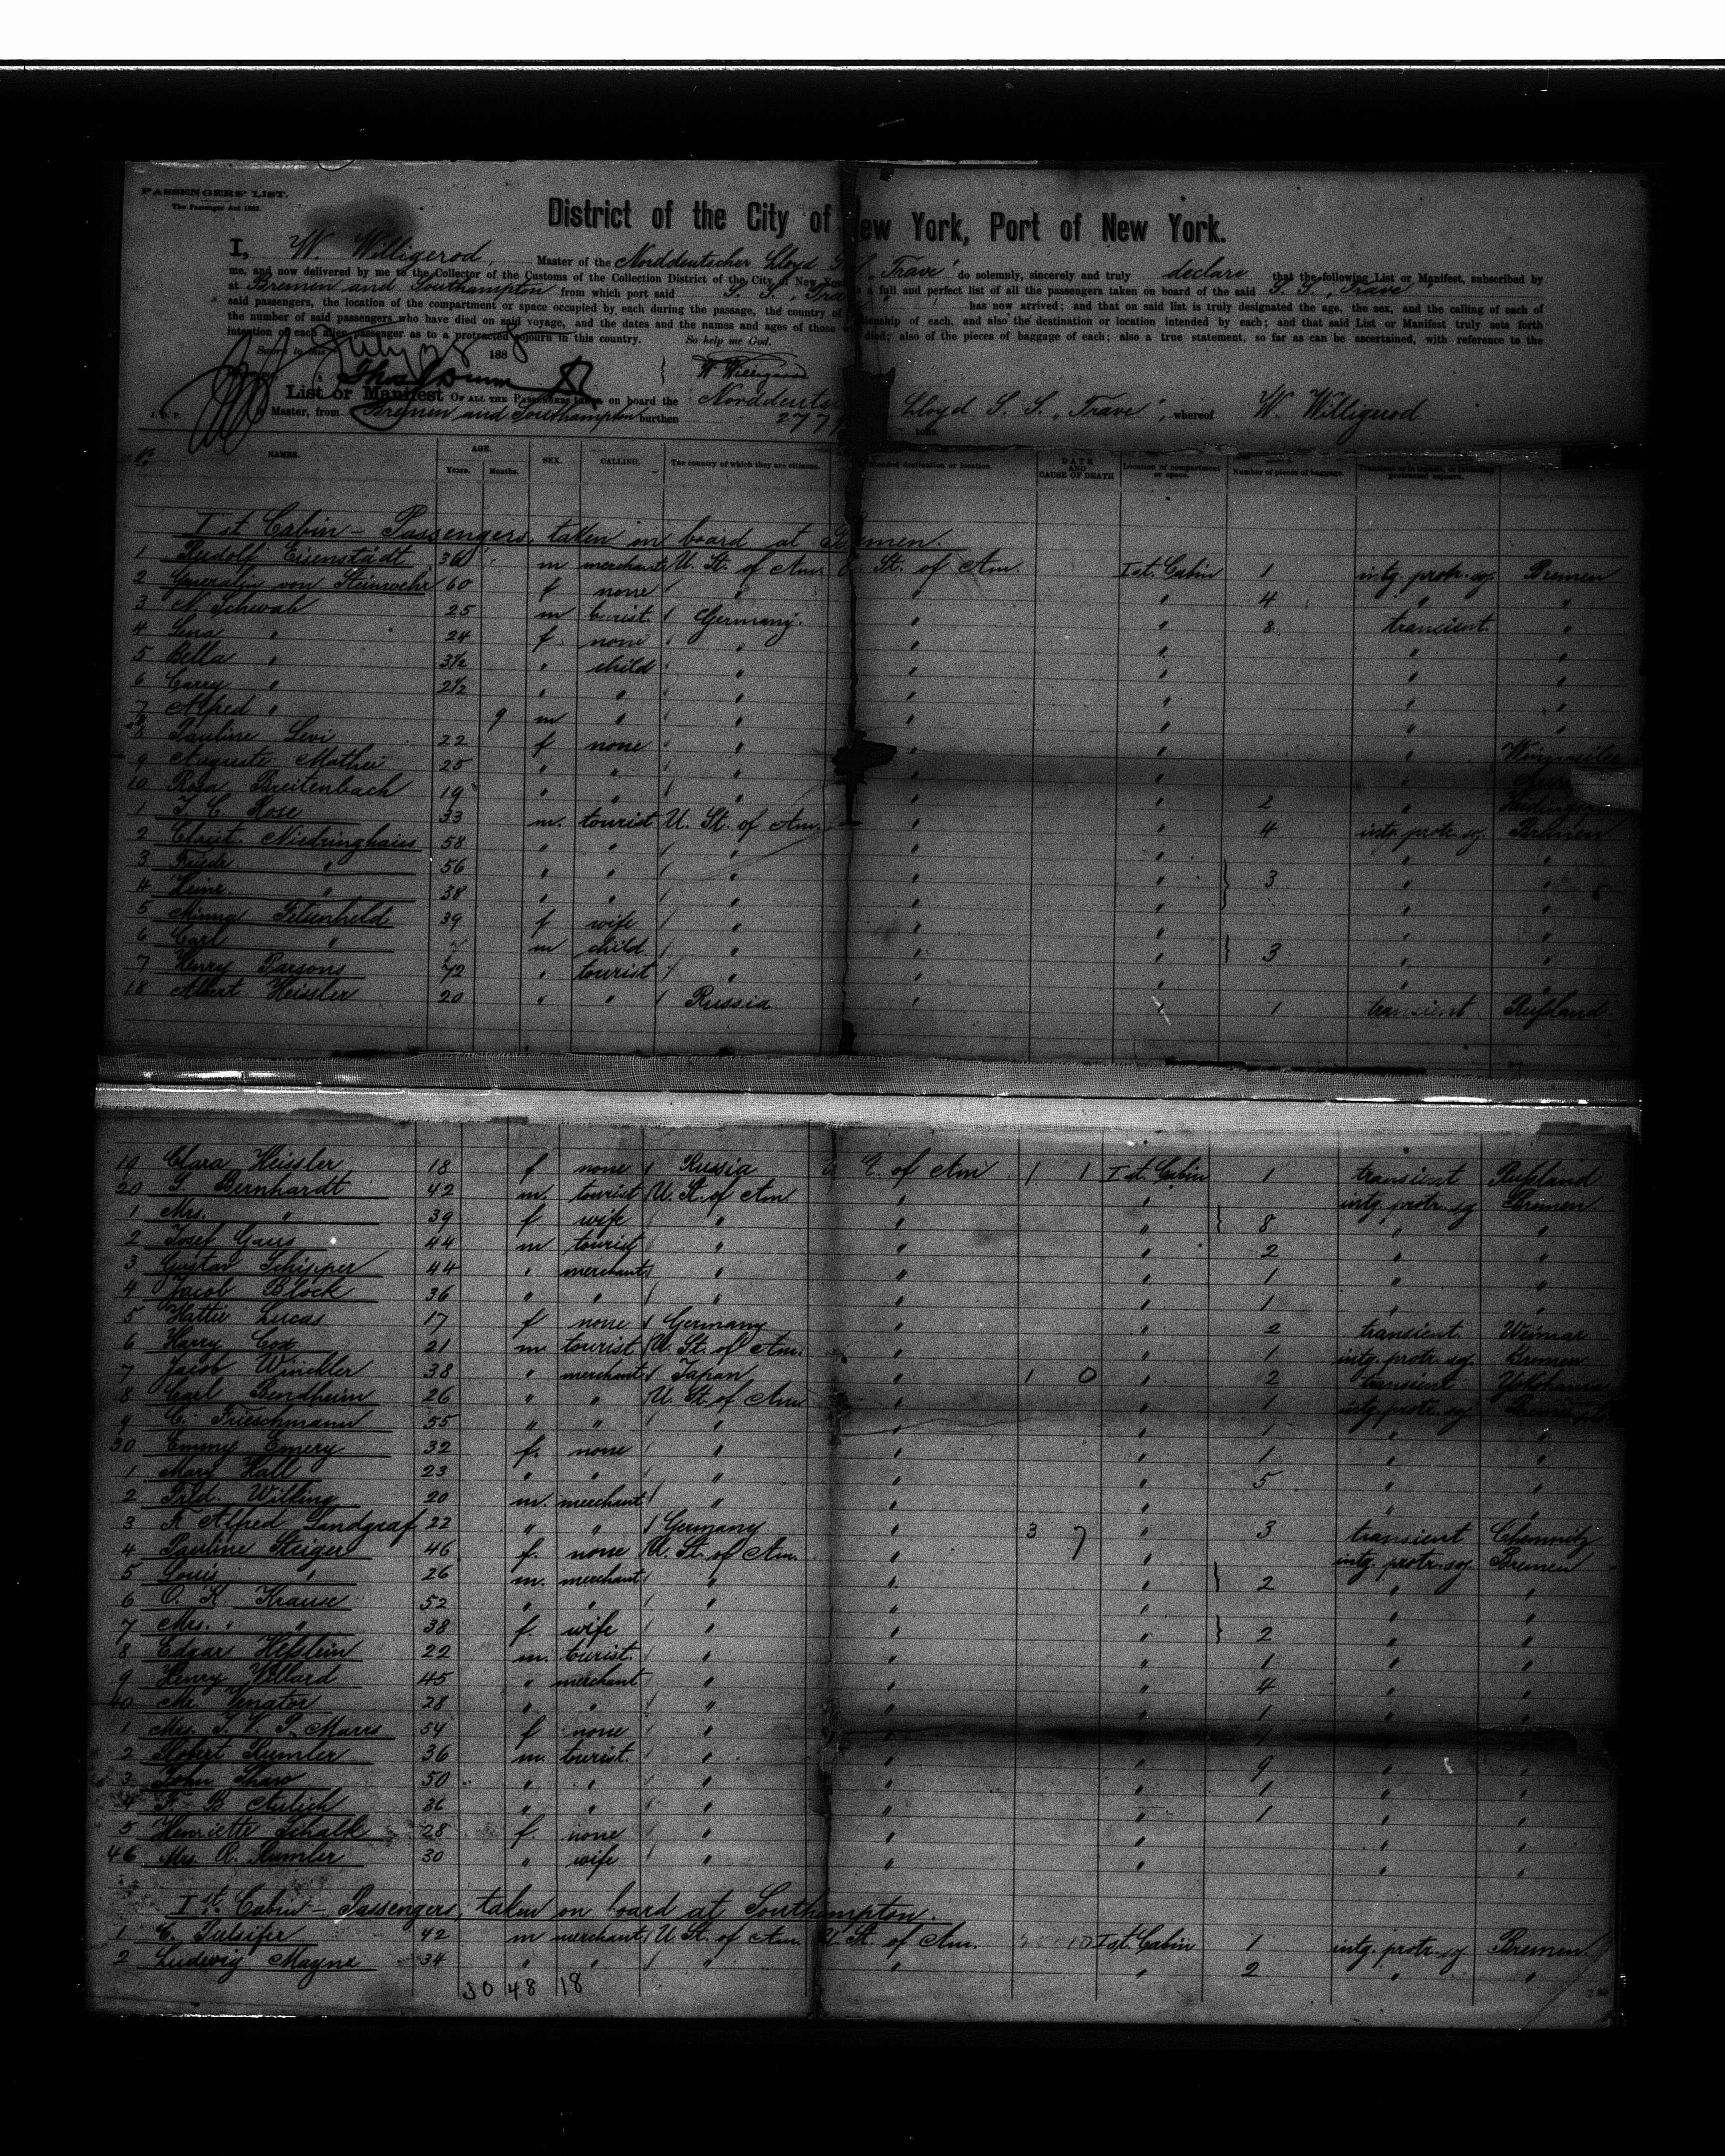 PASSENGERS' LIST.
The Passenger Act 1882.
District of the City of ew York, Port of New York.
I, W. Willigerod, Master of the Norddeutscher Lloyd S. S. „Trave" do solemnly, sincerely and truly declare that the following List or Manifest, subscribed by
me, and now delivered by me to the Collector of the Customs of the Collection District of the City of New York a full and perfect list of all the passengers taken on board of the said S. S. „Trave"
at Bremen and Southampton from which port said S. S. „Tra has now arrived; and that on said list is truly designated the age, the sex, and the calling of each of
said passengers, the location of the compartment or space occupied by each during the passage, the country of tizenship of each, and also the destination or location intended by each; and that said List or Manifest truly sets forth
the number of said passengers who have died on said voyage, and the dates and the names and ages of those w died; also of the pieces of baggage of each; also a true statement, so far as can be ascertained, with reference to the
intention of each alien passenger as to a protracted sojourn in this country. So help me God.
Sworn to this July 28 1888
W Willigerod
List or Manifest OF ALL THE PASSENGERS TAKEN on board the Norddeuts Lloyd S. S. „Trave", whereof W. Willigerod
is Master, from Bremen and Southampton burthen 277 tons.
No. NAMES. AGE. Years. Months. SEX. CALLING. The country of which they are citizens. Intended destination or location. DATE AND CAUSE OF DEATH Location of compartment or space. Number of pieces of baggage. Transient or in transit, or intending protracted sojourn.
I st Cabin - Passengers, taken on board at Bremen.
1 Rudolf Eisenstädt 36 m merchant U. St. of Am. U. St. of Am. I st. Cabin 1 intg. protr. soj. Bremen
2 Generalin von Steinwehr 60 f none " " " 4 " "
3 N. Schwab 25 m tourist Germany " " 8 transient "
4 Lena " 24 f none " " " " "
5 Bella " 3½ " child " " " " "
6 Carry " 2½ " " " " " " "
7 Alfred " 9 m " " " " " "
8 Pauline Levi 22 f none " " " "
9 Auguste Mathei 25 " " " " " "
10 Rosa Breitenbach 19 " " " " " 2 "
1 J. C. Rose 33 m. tourist U. St. of Am. " " 4 intg. protr. soj. Bremen
2 Christ. Niedringhaus 58 " " " " " " "
3 Friedr. " 56 " " " " " 3 " "
4 Heinr. " 38 " " " " " " "
5 Minna 39 f wife " " " " "
6 Carl " m child " " " 3 " "
7 Henry Parsons 72 " tourist " " " " "
18 Albert Heissler 20 " " Russia " " 1 transient Rußland
19 Clara Heissler 18 f none Russia U. St. of Am 1 1 I st. Cabin 1 transient Rußland
20 S. Bernhardt 42 m. tourist U. St. of Am. " " intg. protr. soj Bremen
1 Mrs. " 39 f wife " " " 8 " "
2 Josef Gans 44 m tourist " " " 2 " "
3 Gustav Schipper 44 " merchant " " " 1 " "
4 Jacob Block 36 " " " " " 1 " "
5 Hattie Lucas 17 f none Germany " " 2 transient Weimar
6 Harry Cox 21 m. tourist U. St. of Am. " " 1 intg. protr. soj. Bremen
7 Jacob Winckler 38 " merchant Japan " 1 0 " 2 transient Yokohama
8 Carl Bendheim 26 " " U. St. of Am " " 1 intg. protr. soj Bremen
9 C. Frieschmann 55 " " " " " 1 " "
30 Emmy Emery 32 f. none " " " 1 " "
1 Mary Hall 23 " " " " " 5 " "
2 Fred. Wilking 20 m. merchant " " " " "
3 F. Alfred Landgraf 22 " " Germany " 3 7 " 3 transient Chemnitz
4 Pauline Steiger 46 f. none U. St. of Am. " " intg. protr. soj. Bremen
5 Louis " 26 m. merchant " " " 2 " "
6 O. H Krause 52 " " " " " " "
7 Mrs. " 38 f. wife " " " 2 " "
8 Edgar Hefslein 22 m. tourist. " " " 1 " "
9 Henry Villard 45 " merchant " " " 4 " "
40 Mr. Venator 28 " " " " " 1 " "
1 Mrs. J. V. P. Marrs 54 f none " " " 1 " "
2 Robert Rumler 36 m. tourist. " " " 9 " "
3 John Sharo 50 " " " " " 1 " "
4 F. B. Aulich 36 " " " " " 1 " "
5 Henriette Schalk 28 f. none " " " " "
46 Mrs. R. Rumler 30 " wife " " " " "
I st. Cabin - Passengers, taken on board at Southampton.
1 C. Pulsifer 42 m merchant U. St. of Am. U. St. of Am. 10 I st. Cabin 1 intg. protr. soj Bremen
2 Ludwig Mayne 34 " " " " " 2 " "
30 48 18